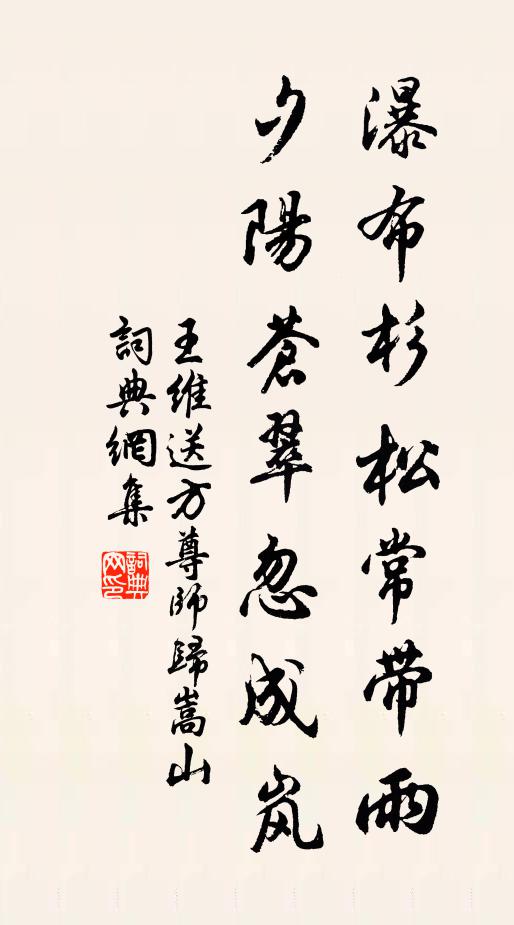 瀑布杉松常带雨
夕陽蒼翠忽成岚
王維送方尊師歸嵩山
詞典網集
詞典网印